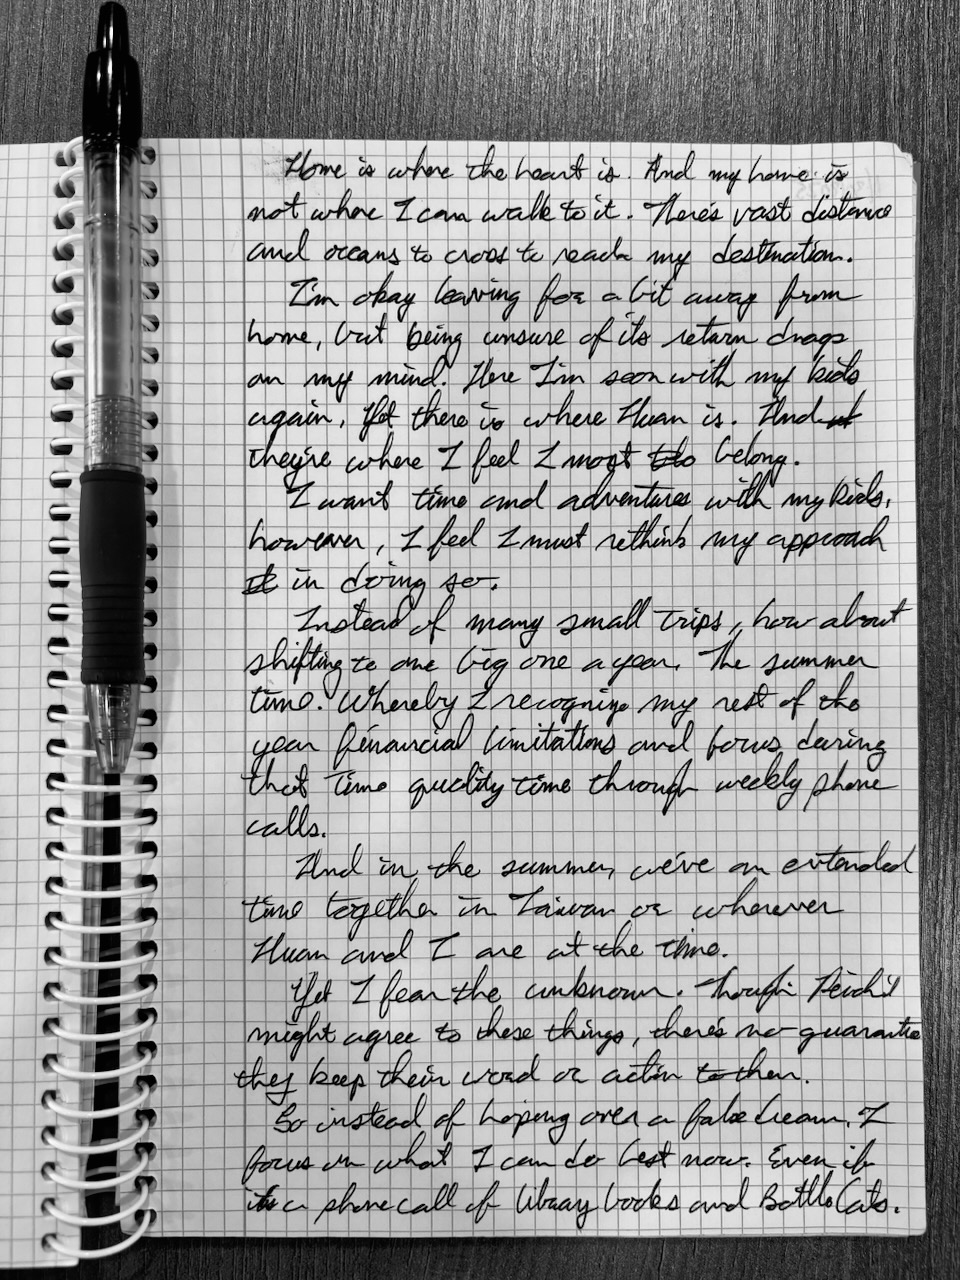 Home is where the heart is. And my home is
not where I can walk to it. There's vast distance
and oceans to cross to reach my destination.
I'm okay leaving for a bit away from
home, but being unsure of its return drags
on my mind. Here I'm soon with my kids
again. Yet there is where Huan is. And
they're where I feel I most belong.
I want time and adventures with my kids,
however, I feel I must rethink my approach
in doing so.
Instead of many small trips, how about
shifting to one big one a year. The summer
time. Whereby I recognize my rest of the
year financial limitations and focus during
that time quality time through weekly phone
calls.
And in the summer, we've an extended
time together in Taiwan or wherever
Huan and I are at the time.
Yet I fear the unknown. Though
might agree to these things, there's no guarantee
they keep their word or action to them.
So instead of hoping over a false dream, I
focus on what I can do best now. Even if
it's a phone call of library books and Battle Cats.